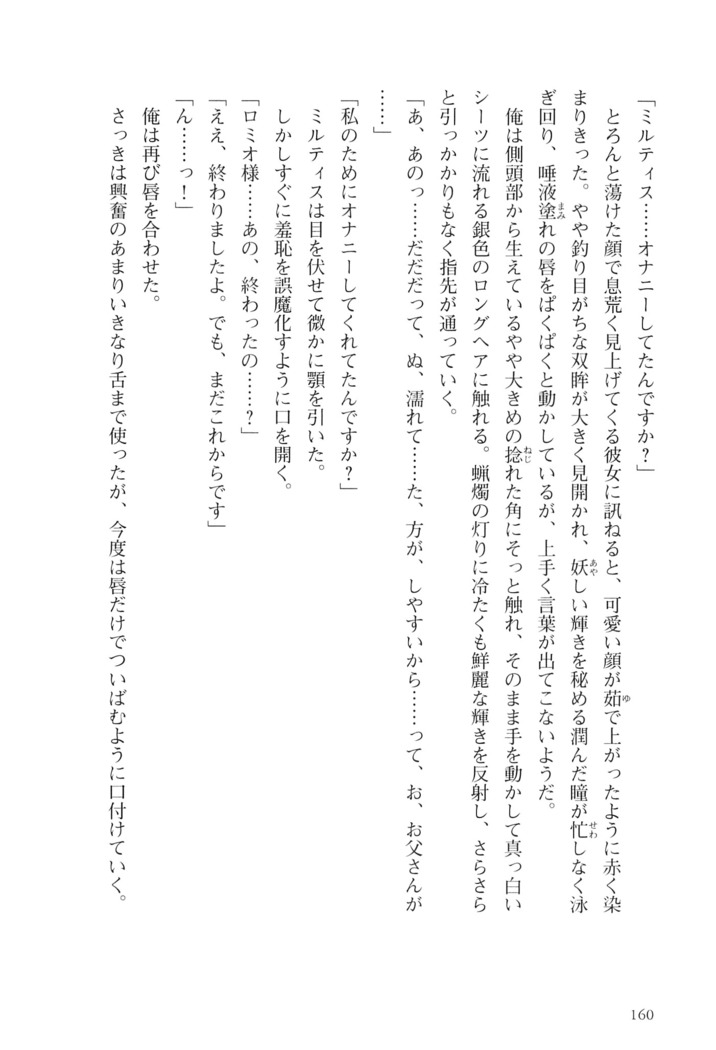 「ミルティス……オナニーしてたんですか？」
とろんと蕩けた顔で息荒く見上げてくる彼女に訊ねると、可愛い顔が茹で上がったように赤く染
まりきった。やや釣り目がちな双眸が大きく見開かれ、妖しい輝きを秘める潤んだ瞳が忙しなく泳
ぎ回り、唾液塗れの唇をぱくぱくと動かしているが、上手く言葉が出てこないようだ。
俺は側頭部から生えているやや大きめの捻れた角にそっと触れ、そのまま手を動かして真っ白い
シーツに流れる銀色のロングヘアに触れる。蝋燭の灯りに冷たくも鮮麗な輝きを反射し、さらさら
と引っかかりもなく指先が通っていく。
「あ、あのっ……だだだって、ぬ、濡れて……た、方が、しやすいから……って、お、お父さんが
……」
「私のためにオナニーしてくれてたんですか？」
ミルティスは目を伏せて微かに顎を引いた。
しかしすぐに羞恥を誤魔化すように口を開く。
「ロミオ様……あの、終わったの……？」
「ええ、終わりましたよ。でも、まだこれからです」
「ん……っ！」
俺は再び唇を合わせた。
さっきは興奮のあまりいきなり舌まで使ったが、今度は唇だけでついばむように口付けていく。
160